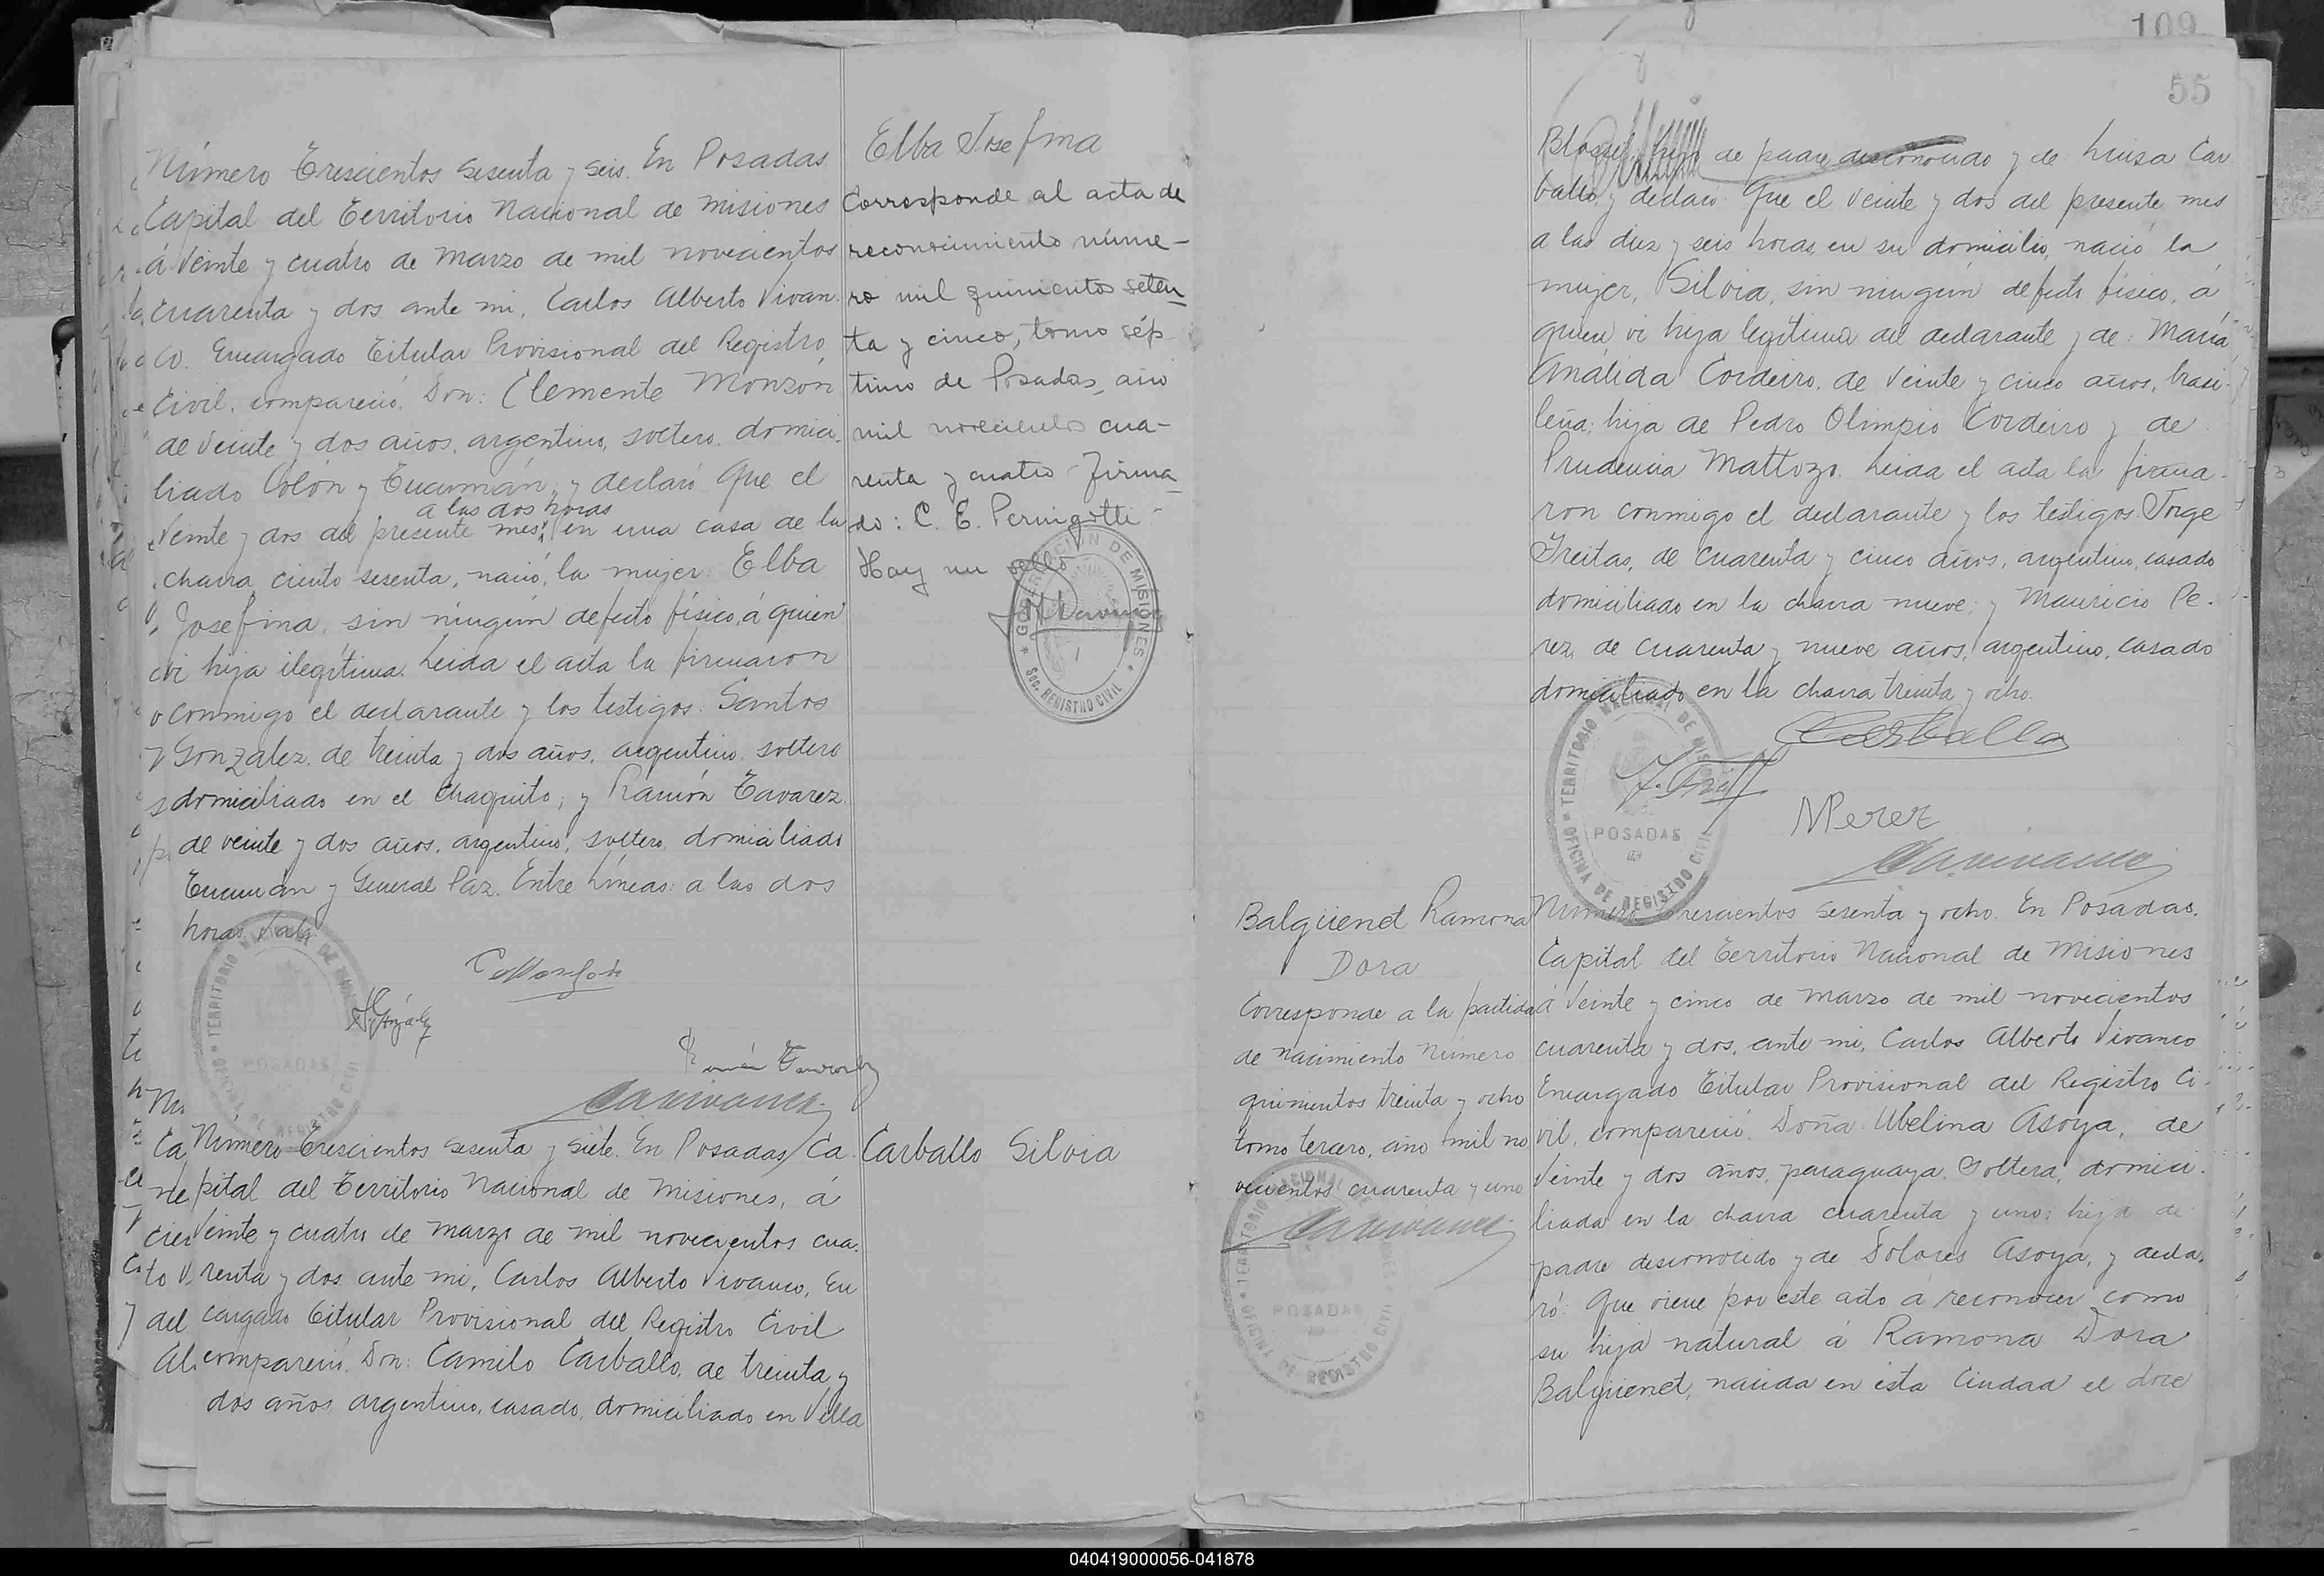 109
55
Número Trescientos sesenta y seis. En Posadas
Capital del Territorio Nacional de Misiones
á Veinte y cuatro de Marzo de mil novecientos
cuarenta y dos ante mi, Carlos Alberto Vivan
co. Encargado Titular Provisional del Registro
Civil, compareció, Don: Clemente Monzón
de Veinte y dos años, argentino, soltero, domici
liado Colón y Tucumán, y declaró Que el
a las dos horas
Veinte y dos del presente mes, en una casa de la
chacra ciento sesenta, nació, la mujer: Elba
Josefina, sin ningún defecto físico, á quien
vi hija ilegítima. Leida el acta la firmaron
conmigo el declarante y los testigos: Santos
Gonzalez, de treinta y dos años, argentino, soltero
domiciliado en el Chaquito; y Ramón Tavarez
de veinte y dos años, argentino, soltero, domiciliado
Tucumán y General Paz. Entre Líneas: a las dos
horas Vale
Elba Josefina
Corresponde al acta de
reconocimiento núme-
ro mil quinientos seten
ta y cinco, tomo sép
timo de Posadas, año
mil novecientos cua-
renta y cuatro - Firma
do: C. E. Peringotti -
Hay un sello
GOBERNACION DE MISIONES
SEC. REGISTRO CIVIL
TERRITORIO NACIONAL DE MISIONES
POSADAS
OFICINA DE REGISTRO CIVIL
Número Trescientos sesenta y siete. En Posadas, Ca
pital del Territorio Nacional de Misiones, á
Veinte y cuatro de Marzo de mil novecientos cua
renta y dos ante mi, Carlos Alberto Vivanco, En
cargado Titular Provisional del Registro Civil
compareció, Don: Camilo Carballo, de treinta y
dos años, argentino, casado, domiciliado en Villa
Carballo Silvia
Blaquel, hijo de padre desconocido y de Luisa Car
ballo, y declaró: Que el Veinte y dos del presente mes
a las diez y seis horas, en su domicilio, nació la
mujer, Silvia, sin ningún defecto físico, á
quien vi hija legítima del declarante y de: María
Análida Cordeiro, de Veinte y cinco años, brasi
leña; hija de Pedro Olimpio Cordeiro y de
Prudencia Mattozo. Leida el acta la firma
ron conmigo el declarante y los testigos: Jorge
Freitas, de cuarenta y cinco años, argentino, casado
domiciliado en la chacra nueve; y Mauricio Pe-
rez, de cuarenta y nueve años, argentino, casado
domiciliado en la chacra treinta y ocho.
CCarballo
MPerez
TERRITORIO NACIONAL DE MISIONES
POSADAS
OFICINA DE REGISTRO CIVIL
Balgüend Ramona
Dora
Corresponde a la partida
de nacimiento Número
quinientos treinta y ocho
tomo tercero, año mil no
vecientos cuarenta y uno
POSADAS
Número Trescientos sesenta y ocho. En Posadas,
Capital del Territorio Nacional de Misiones
á Veinte y cinco de Marzo de mil novecientos
cuarenta y dos, ante mi, Carlos Alberto Vivanco
Encargado Titular Provisional del Registro Ci
vil, compareció, Doña Ubelina Asoya, de
Veinte y dos años, paraguaya, soltera, domici
liada en la chacra cuarenta y uno; hija de
padre desconocido y de Dolores Asoya, y decla
ró: Que viene por este acto á reconocer como
su hija natural á Ramona Dora
Balgüend, nacida en ésta Ciudad el doce
040419000056-041878